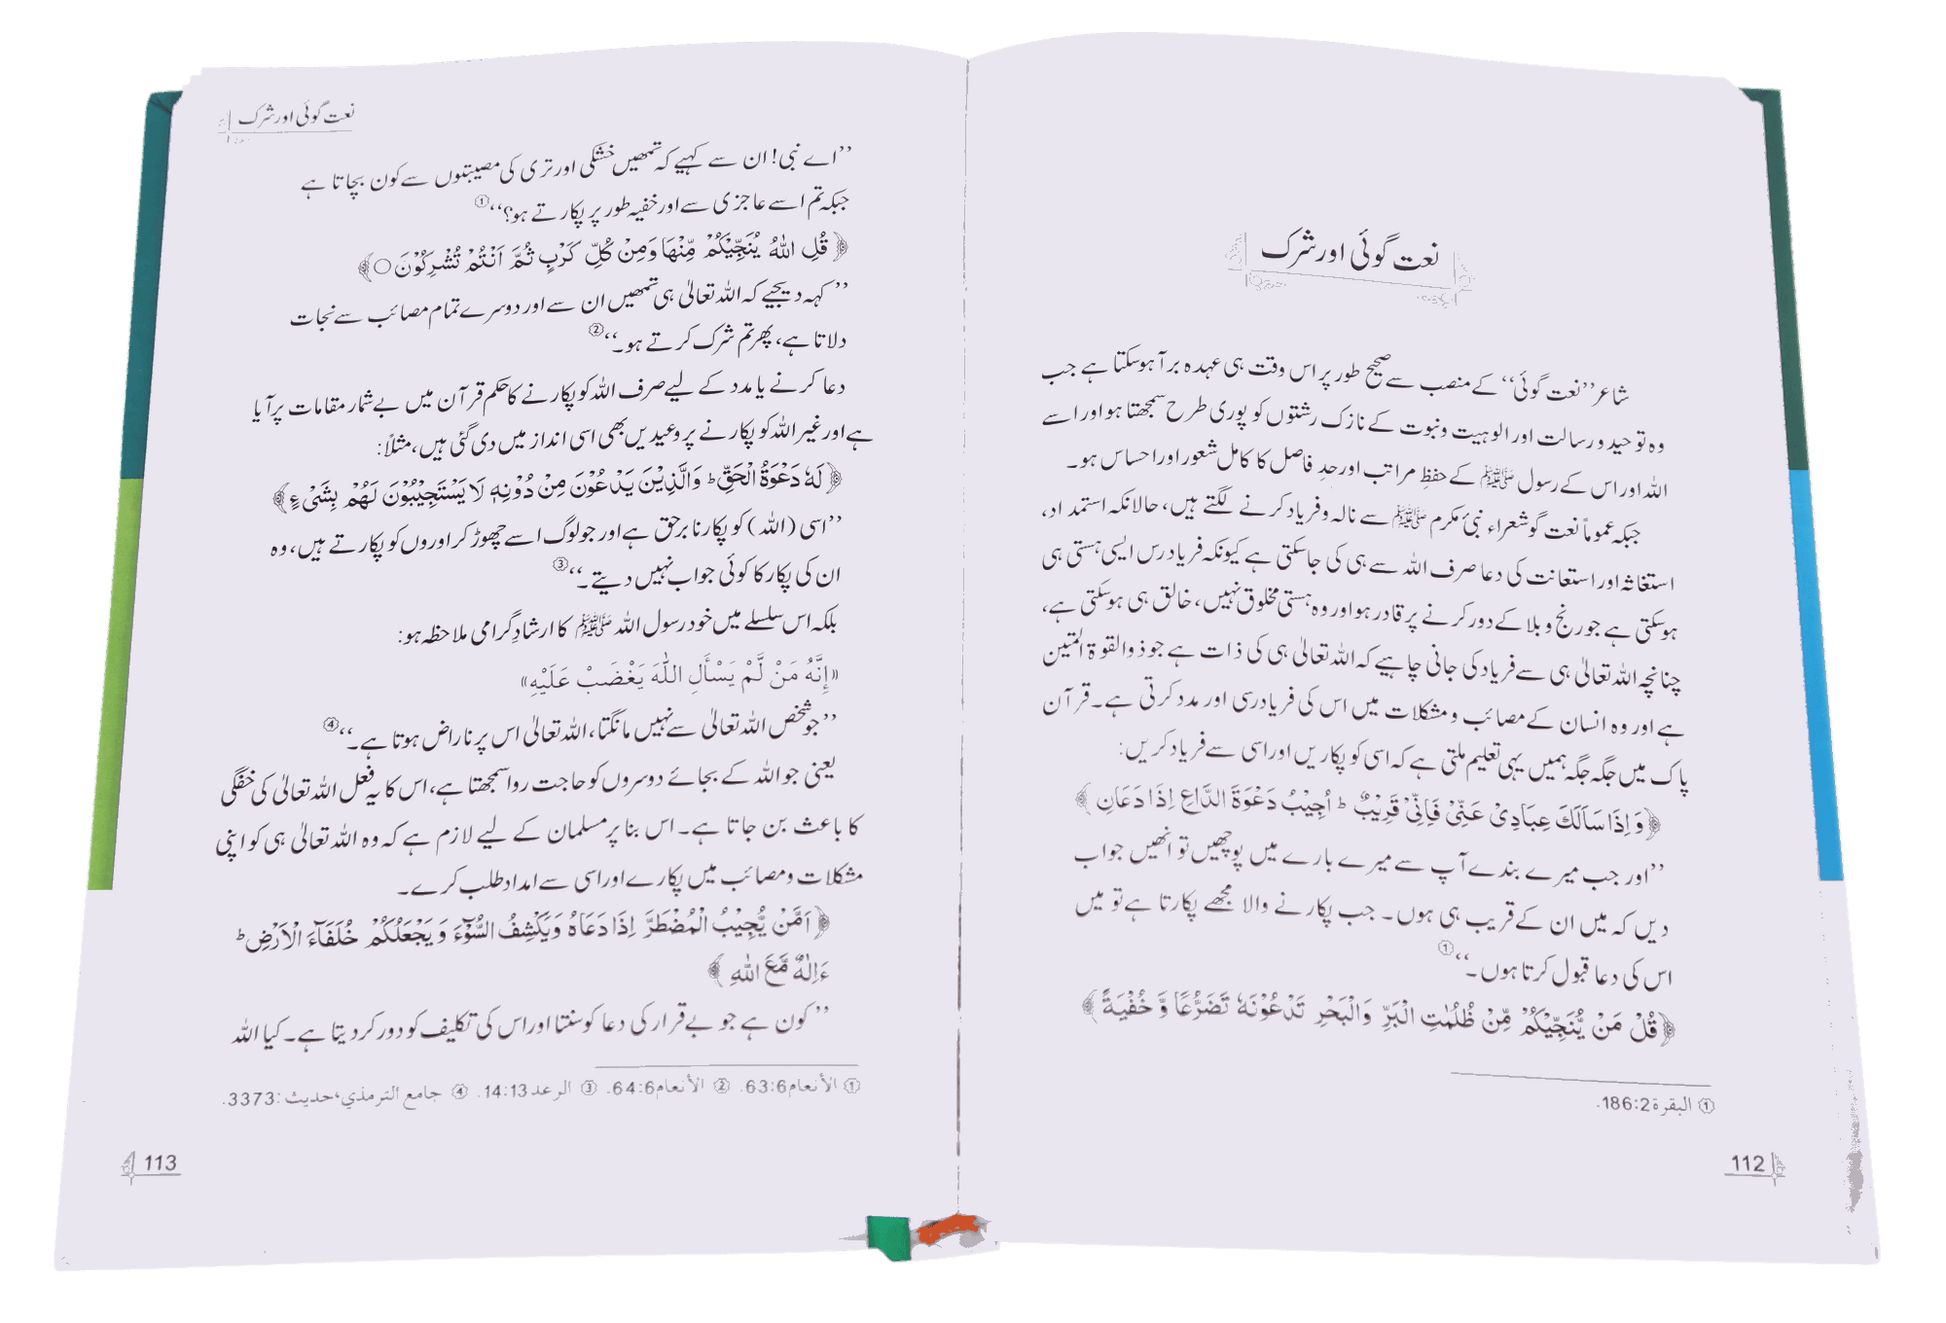 نعت گوئی اور شرک
شاعر ’’نعت گوئی‘‘ کے منصب سے صحیح طور پر اس وقت ہی عہدہ برآ ہوسکتا ہے جب
وہ توحید و رسالت اور الوہیت ونبوت کے نازک رشتوں کو پوری طرح سمجھتا ہو اور اسے
اللہ اور اس کے رسول ﷺ کے حفظِ مراتب اور حدِ فاصل کا کامل شعور اور احساس ہو۔
جبکہ عموماً نعت گو شعراء نبیٔ مکرم ﷺ سے نالہ و فریاد کرنے لگتے ہیں، حالانکہ استمداد،
استغاثہ اور استعانت کی دعا صرف اللہ سے ہی کی جاسکتی ہے کیونکہ فریاد رس ایسی ہستی ہی
ہوسکتی ہے جو رنج و بلا کے دور کرنے پر قادر ہو اور وہ ہستی مخلوق نہیں، خالق ہی ہوسکتی ہے،
چنانچہ اللہ تعالیٰ ہی سے فریاد کی جانی چاہیے کہ اللہ تعالیٰ ہی کی ذات ہے جو ذوالقوۃ المتین
ہے اور وہ انسان کے مصائب و مشکلات میں اس کی فریاد رسی اور مدد کرتی ہے۔ قرآن
پاک میں جگہ جگہ ہمیں یہی تعلیم ملتی ہے کہ اسی کو پکاریں اور اسی سے فریاد کریں:
﴿وَ اِذَا سَاَلَكَ عِبَادِیْ عَنِّیْ فَاِنِّیْ قَرِیْبٌ ؕ اُجِیْبُ دَعْوَةَ الدَّاعِ اِذَا دَعَانِ﴾
’’اور جب میرے بندے آپ سے میرے بارے میں پوچھیں تو انھیں جواب
دیں کہ میں ان کے قریب ہی ہوں۔ جب پکارنے والا مجھے پکارتا ہے تو میں
اس کی دعا قبول کرتا ہوں۔‘‘①
﴿قُلْ مَنْ یُّنَجِّیْكُمْ مِّنْ ظُلُمٰتِ الْبَرِّ وَالْبَحْرِ تَدْعُوْنَهٗ تَضَرُّعًا وَّ خُفْیَةً﴾
① البقرة 2:186.
112
نعت گوئی اور شرک
’’اے نبی! ان سے کہیے کہ تمھیں خشکی اور تری کی مصیبتوں سے کون بچاتا ہے
جبکہ تم اسے عاجزی سے اور خفیہ طور پر پکارتے ہو؟‘‘①
﴿قُلِ اللّٰهُ یُنَجِّیْكُمْ مِّنْهَا وَمِنْ كُلِّ كَرْبٍ ثُمَّ اَنْتُمْ تُشْرِكُوْنَ○﴾
’’کہہ دیجیے کہ اللہ تعالیٰ ہی تمھیں ان سے اور دوسرے تمام مصائب سے نجات
دلاتا ہے، پھر تم شرک کرتے ہو۔‘‘②
دعا کرنے یا مدد کے لیے صرف اللہ کو پکارنے کا حکم قرآن میں بے شمار مقامات پر آیا
ہے اور غیر اللہ کو پکارنے پر وعیدیں بھی اسی انداز میں دی گئی ہیں، مثلاً:
﴿لَهٗ دَعْوَةُ الْحَقِّ ؕ وَالَّذِیْنَ یَدْعُوْنَ مِنْ دُوْنِهٖ لَا یَسْتَجِیْبُوْنَ لَهُمْ بِشَیْءٍ﴾
’’اسی (اللہ) کو پکارنا برحق ہے اور جو لوگ اسے چھوڑ کر اوروں کو پکارتے ہیں، وہ
ان کی پکار کا کوئی جواب نہیں دیتے۔‘‘③
بلکہ اس سلسلے میں خود رسول اللہ ﷺ کا ارشادِ گرامی ملاحظہ ہو:
«إِنَّهُ مَنْ لَّمْ يَسْأَلِ اللّٰهَ يَغْضَبْ عَلَيْهِ»
’’جو شخص اللہ تعالیٰ سے نہیں مانگتا، اللہ تعالیٰ اس پر ناراض ہوتا ہے۔‘‘④
یعنی جو اللہ کے بجائے دوسروں کو حاجت روا سمجھتا ہے، اس کا یہ فعل اللہ تعالیٰ کی خفگی
کا باعث بن جاتا ہے۔ اس بنا پر مسلمان کے لیے لازم ہے کہ وہ اللہ تعالیٰ ہی کو اپنی
مشکلات و مصائب میں پکارے اور اسی سے امداد طلب کرے۔
﴿اَمَّنْ یُّجِیْبُ الْمُضْطَرَّ اِذَا دَعَاهُ وَیَكْشِفُ السُّوْٓءَ وَیَجْعَلُكُمْ خُلَفَآءَ الْاَرْضِ ؕ
ءَاِلٰهٌ مَّعَ اللّٰهِ﴾
’’کون ہے جو بے قرار کی دعا کو سنتا اور اس کی تکلیف کو دور کردیتا ہے۔ کیا اللہ
① الأنعام 6:63. ② الأنعام 6:64. ③ الرعد 13:14. ④ جامع الترمذي، حديث: 3373.
113